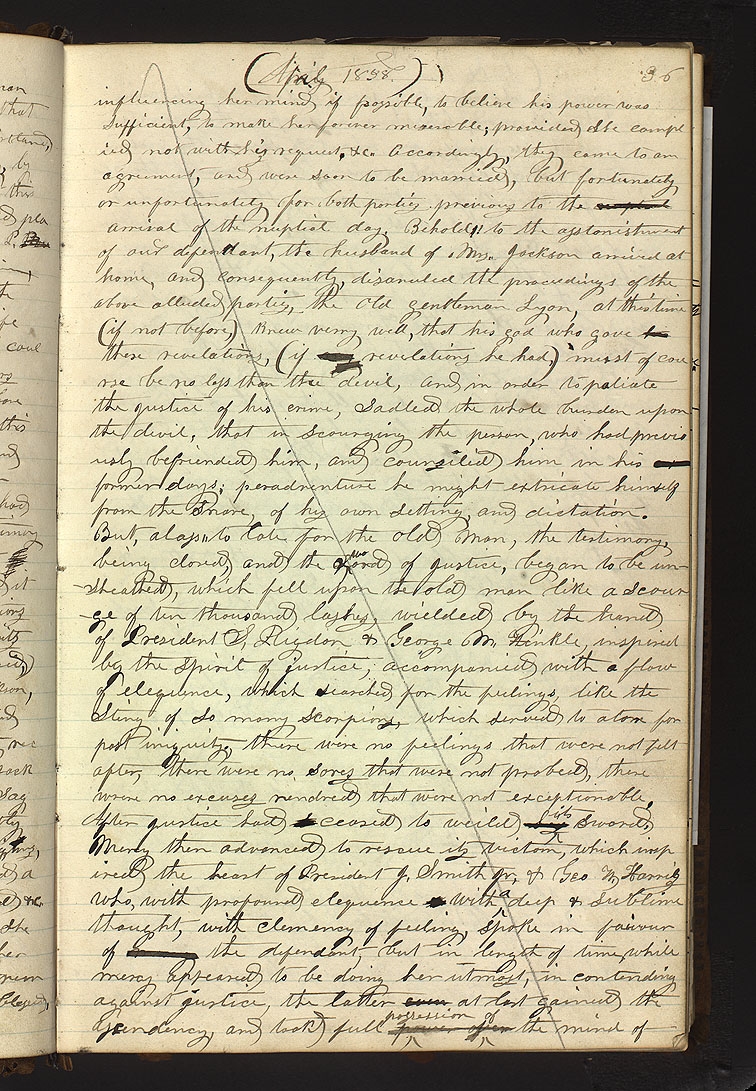 (April 1838.)
36
influencing her mind, if possible, to believe his power was
sufficient, to make her forever miserable; provided she compl-
ied not with his request, &c. Accordingly, they came to an
agreement, and were soon to be married, but fortunately
or unfortunately for both parties previous to the nuptial
arrival of the nuptial day, Behold!! to the asstonishment
of our defendant, the husband of Mrs. Jackson arrived at
home, and consequently, disanuled the proceedings of the
above alluded parties, the old gentleman Lyon, at this time
(if not before) knew verry well, that his god who gave
these revelations, (if revelations he had) must of cou-
rse be no less than the devil, and in order to paliate
the justice of his crime, sadled the whole burden upon
the devil, that in scourging the person, who had previo
usly befriended him, and counsiled him in his
former days; peradventure he might extricate himself
from the snare, of his own setting and dictation.
But, alass!! to late for the old man, the testimony,
being closed, and the sword of justice, began to be un-
sheathed, which fell upon the old man like a scour-
ge of ten thousand lashes, wielded by the hand
of President S. Rigdon & George M. Hinkle, inspired
by the spirit of justice, accompanied with a flow
of elequence, which searched for the feelings, like the
sting of so many scorpions, which served to atone for
past iniquity, there were no feelings that were not felt
after, there were no sores that were not probed, there
were no excuses rendred that were not exceptionable.
After justice had ceased to weild its sword,
Mercy then advanced to rescue its victom, which insp
ired the heart of President J. Smith jr, & Geo W. Harris
who, with profound elequence with a deep & sublime
thought, with clemency of feeling, spoke in faivour
of the defendant, but in length of time, while
mercy appeared to be doing her utmost, in contending
against justice, the latter even at last gained the
ascendency, and took full power over possession of the mind of